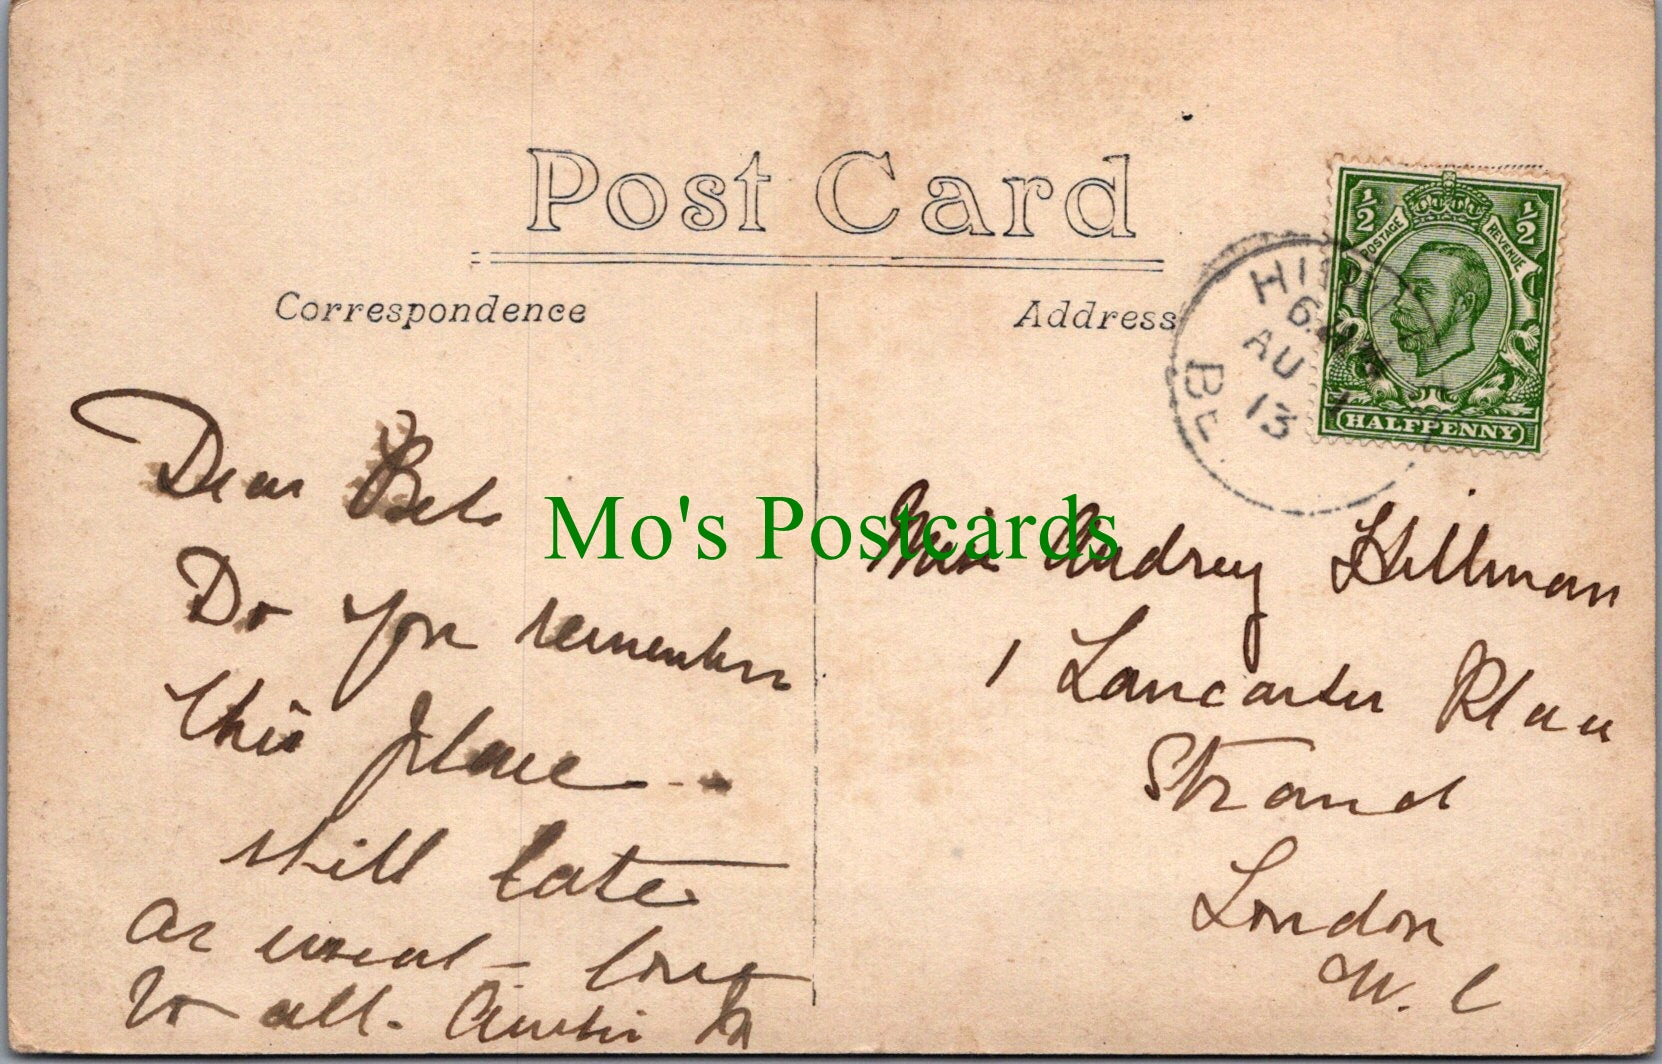 Post Card
Correspondence
Address
½ ½
POSTAGE REVENUE
HALFPENNY
6.
AU
13
BE
Mo's Postcards
Dear Bet
Do you remember
this place
still late
as usual – love
to all.
Miss Audrey Hillman
1 Lancaster Place
Strand
London
W. C